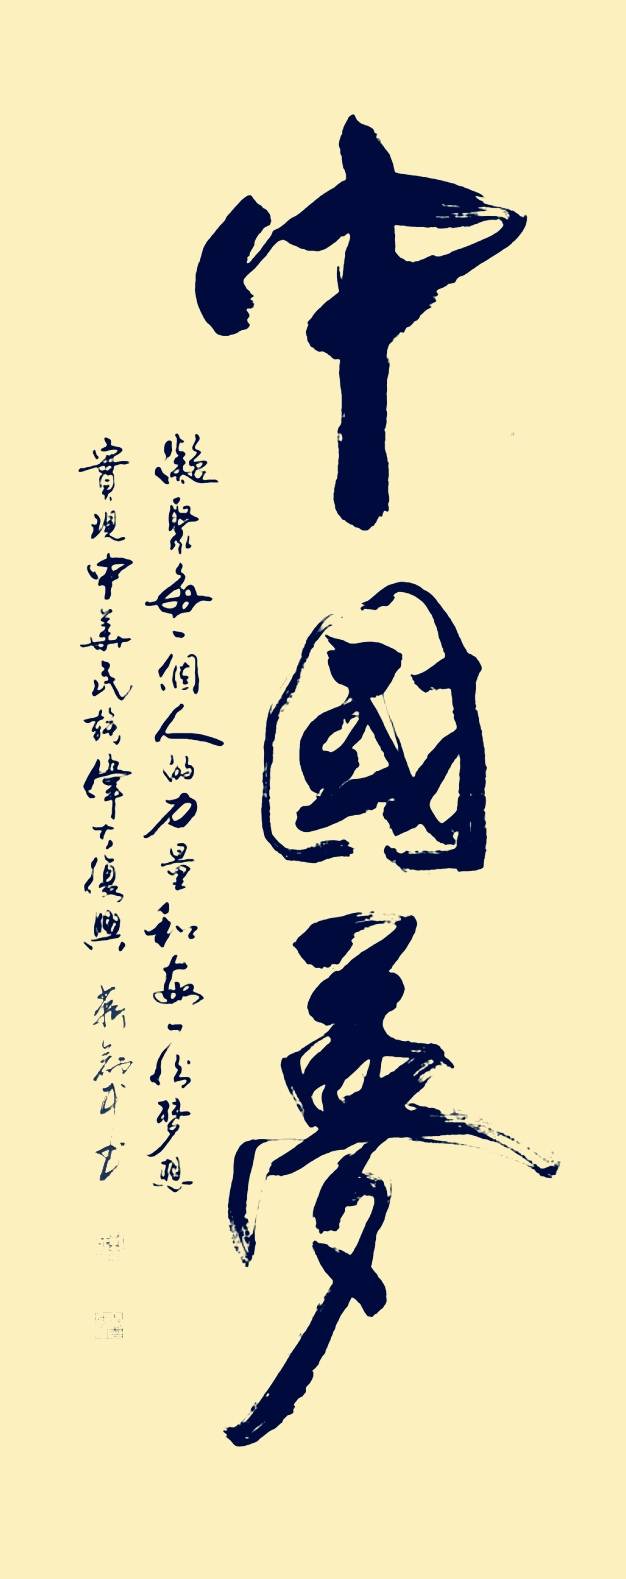 中國夢
凝聚每一個人的力量和每一份梦想
實現中華民族偉大復興
書